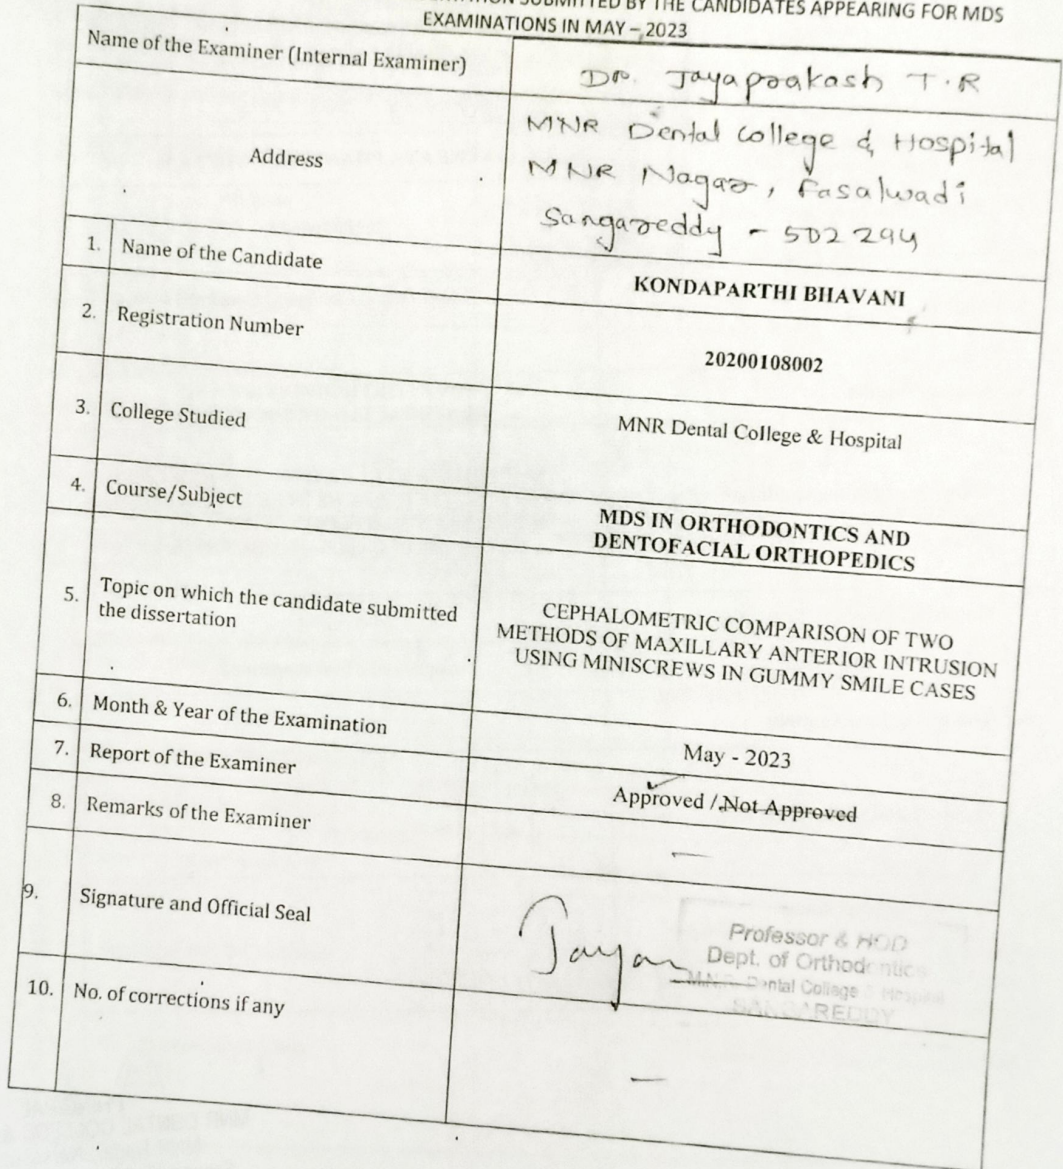 SUBMITTED BY THE CANDIDATES APPEARING FOR MDS
EXAMINATIONS IN MAY – 2023
Name of the Examiner (Internal Examiner)
Dr. Jayaprakash T.R
Address
MNR Dental College & Hospital
MNR Nagar, Fasalwadi
Sangareddy - 502294
1. Name of the Candidate
KONDAPARTHI BHAVANI
2. Registration Number
20200108002
3. College Studied
MNR Dental College & Hospital
4. Course/Subject
MDS IN ORTHODONTICS AND
DENTOFACIAL ORTHOPEDICS
5. Topic on which the candidate submitted
the dissertation
CEPHALOMETRIC COMPARISON OF TWO
METHODS OF MAXILLARY ANTERIOR INTRUSION
USING MINISCREWS IN GUMMY SMILE CASES
6. Month & Year of the Examination
May - 2023
7. Report of the Examiner
Approved / Not Approved
8. Remarks of the Examiner
—
9. Signature and Official Seal
Jayan
Professor & HOD
Dept. of Orthodontics
M.N.R. Dental College & Hospital
SANGAREDDY
10. No. of corrections if any
—